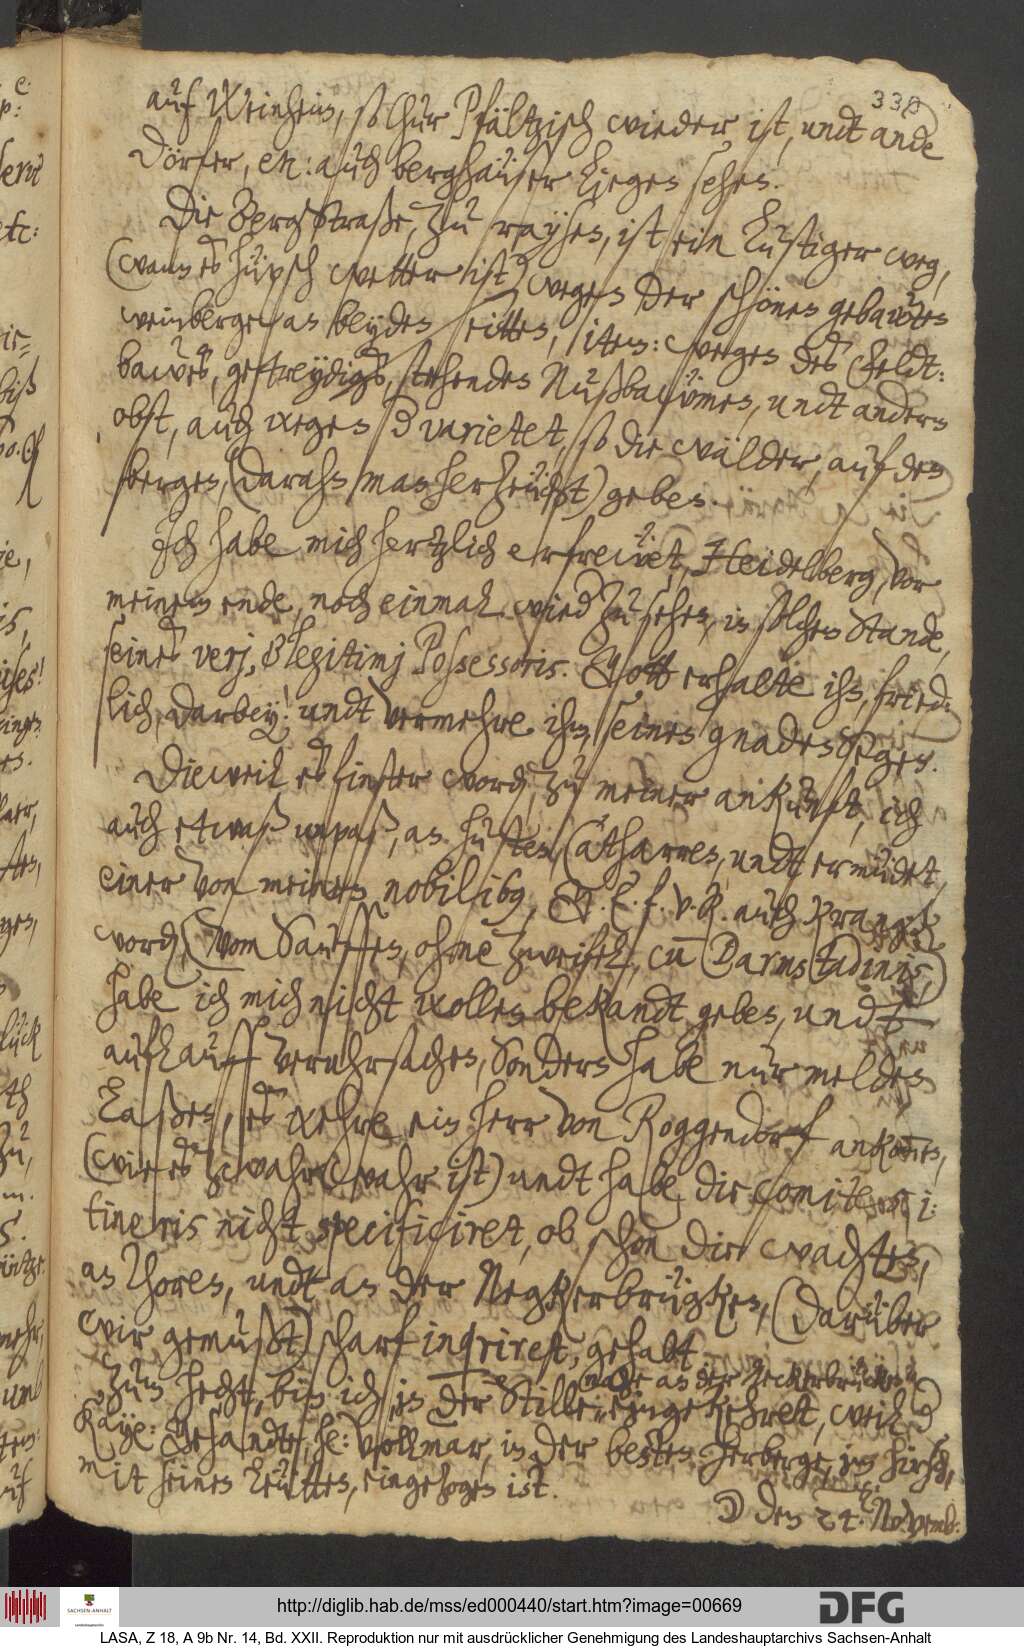 338
auf Weinheim, so Chur Pfältzisch wieder ist, undt ande
Dörfer, etc: auch berghäuser liegen sehen.
Die BergStraße, zu raysen, ist ein lustiger weg,
(wann es hüpsch wetter ist) wegen der schönen gebawten
weinberge an beyden seitten, item: wegen des Feldt:
bawes, getreydigs, stehenden Nußbaumen, undt andern
obst, auch wegen d varietet, so die wälder, auf den
bergen, (daran man herzeücht) geben.
Ich habe mich hertzlich erfrewet, Heidelberg, vor
meinem ende, noch einmal wied zu sehen, in solchem Stande,
seines veri, & legitimj Possessoris. Gott erhalte ihn, fried:
lich, darbey! undt vermehre ihm, seinen gnaden Segen.
Dieweil es finster word, zu meiner ankunft, ich
auch etwaß unpaß, an husten, Catharren, undt ermüdet,
einer von meinen nobilib9, E. E. f. v. K. auch kranck
word, (vom Sauffen, ohne zweifel, cum Darmstadinis,)
habe ich mich nicht wollen bekandt geben, undt
auflauff veruhrsachen, Sondern habe nur melden
laßen, es wehre ein herr von Roggendorf ankommen,
(wie es zwahr wahr ist) undt habe die comites i:
tineris nicht specificiret, ob schon die wachten,
an Thoren, undt an der Negkerbrügken, (darüber
wir gemußt) scharf inqriret, gehabt
nahe an der Neckerbrücken
Zum hecht, bin ich, in der Stille eingekehret, weil d
Kaye: Gesandte, he: Volkmar, in der besten herberge, im hirsch,
mit seinen leütten, eingezogen ist.
☽ den 24. Novemb:
http://diglib.hab.de/mss/ed000440/start.htm?image=00669
DFG
SACHSEN-ANHALT
LASA, Z 18, A 9b Nr. 14, Bd. XXII. Reproduktion nur mit ausdrücklicher Genehmigung des Landeshauptarchivs Sachsen-Anhalt